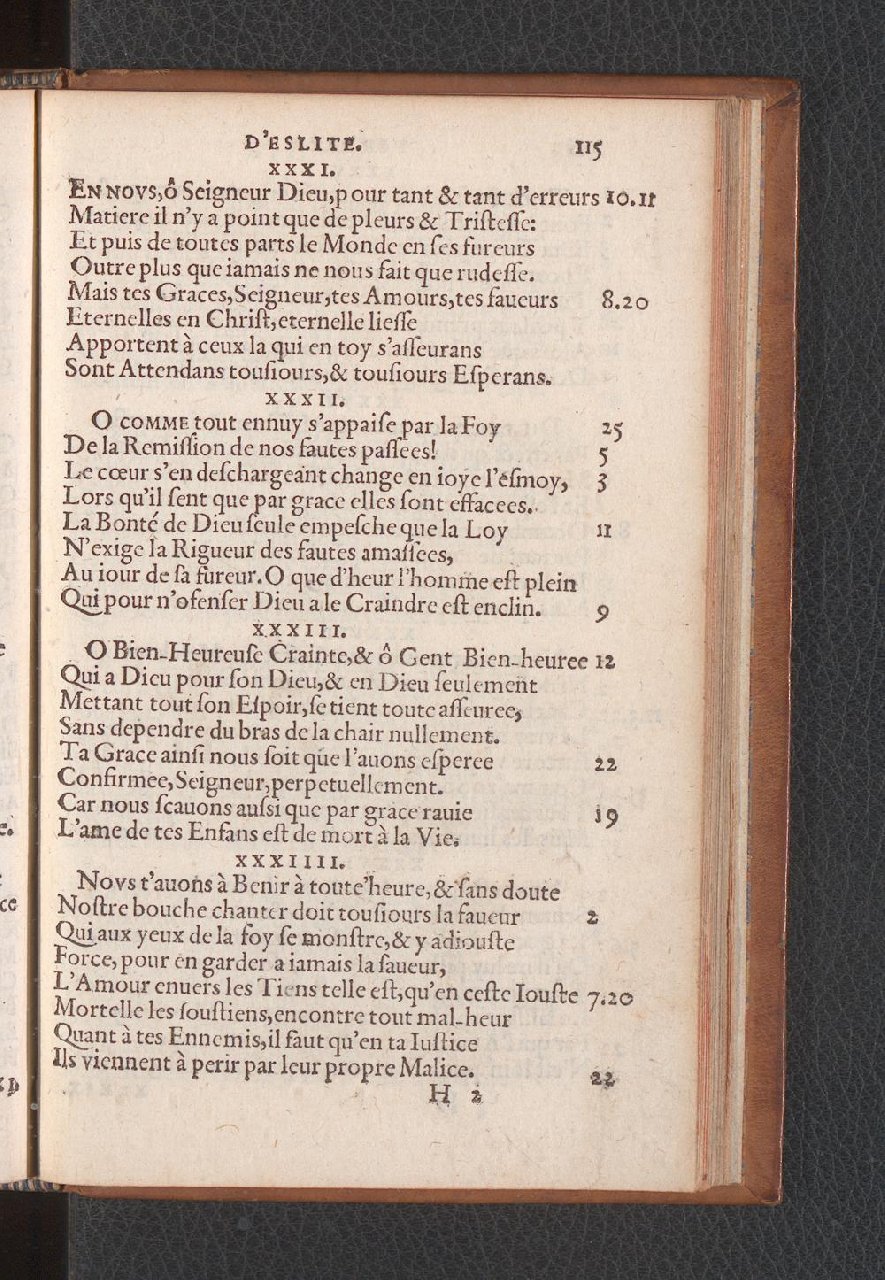 D'ESLITE. 115
XXXI.
EN NOVS,ô Seigneur Dieu,pour tant & tant d'erreurs 10.11
Matiere il n'y a point que de pleurs & Tristesse:
Et puis de toutes parts le Monde en ses fureurs
Outre plus que iamais ne nous fait que rudesse.
Mais tes Graces,Seigneur,tes Amours,tes faueurs 8.20
Eternelles en Christ,eternelle liesse
Apportent à ceux la qui en toy s'asseurans
Sont Attendans tousiours,& tousiours Esperans.
XXXII.
O COMME tout ennuy s'appaise par la Foy 25
De la Remission de nos fautes passees! 5
Le cœur s'en deschargeant change en ioye l'ésmoy, 3
Lors qu'il sent que par grace elles sont effacees.
La Bonté de Dieu seule empesche que la Loy 11
N'exige la Rigueur des fautes amassees,
Au iour de sa fureur. O que d'heur l'homme est plein
Qui pour n'ofenser Dieu a le Craindre est enclin. 9
XXXIII.
O Bien-Heureuse Crainte,& ô Gent Bien-heuree 12
Qui a Dieu pour son Dieu,& en Dieu seulement
Mettant tout son Espoir,se tient toute asseuree,
Sans dependre du bras de la chair nullement.
Ta Grace ainsi nous soit que l'auons esperee 22
Confirmee,Seigneur,perpetuellement.
Car nous scauons aussi que par grace rauie 19
L'ame de tes Enfans est de mort à la Vie.
XXXIIII.
Novs t'auons à Benir à toute'heure,& sans doute
Nostre bouche chanter doit tousiours la faueur 2
Qui aux yeux de la foy se monstre,& y adiouste
Force, pour en garder a iamais la saueur,
L'Amour enuers les Tiens telle est,qu'en ceste Iouste 7.20
Mortelle les soustiens,encontre tout mal-heur
Quant à tes Ennemis,il faut qu'en ta Iustice
Ils viennent à perir par leur propre Malice. 22
H 2